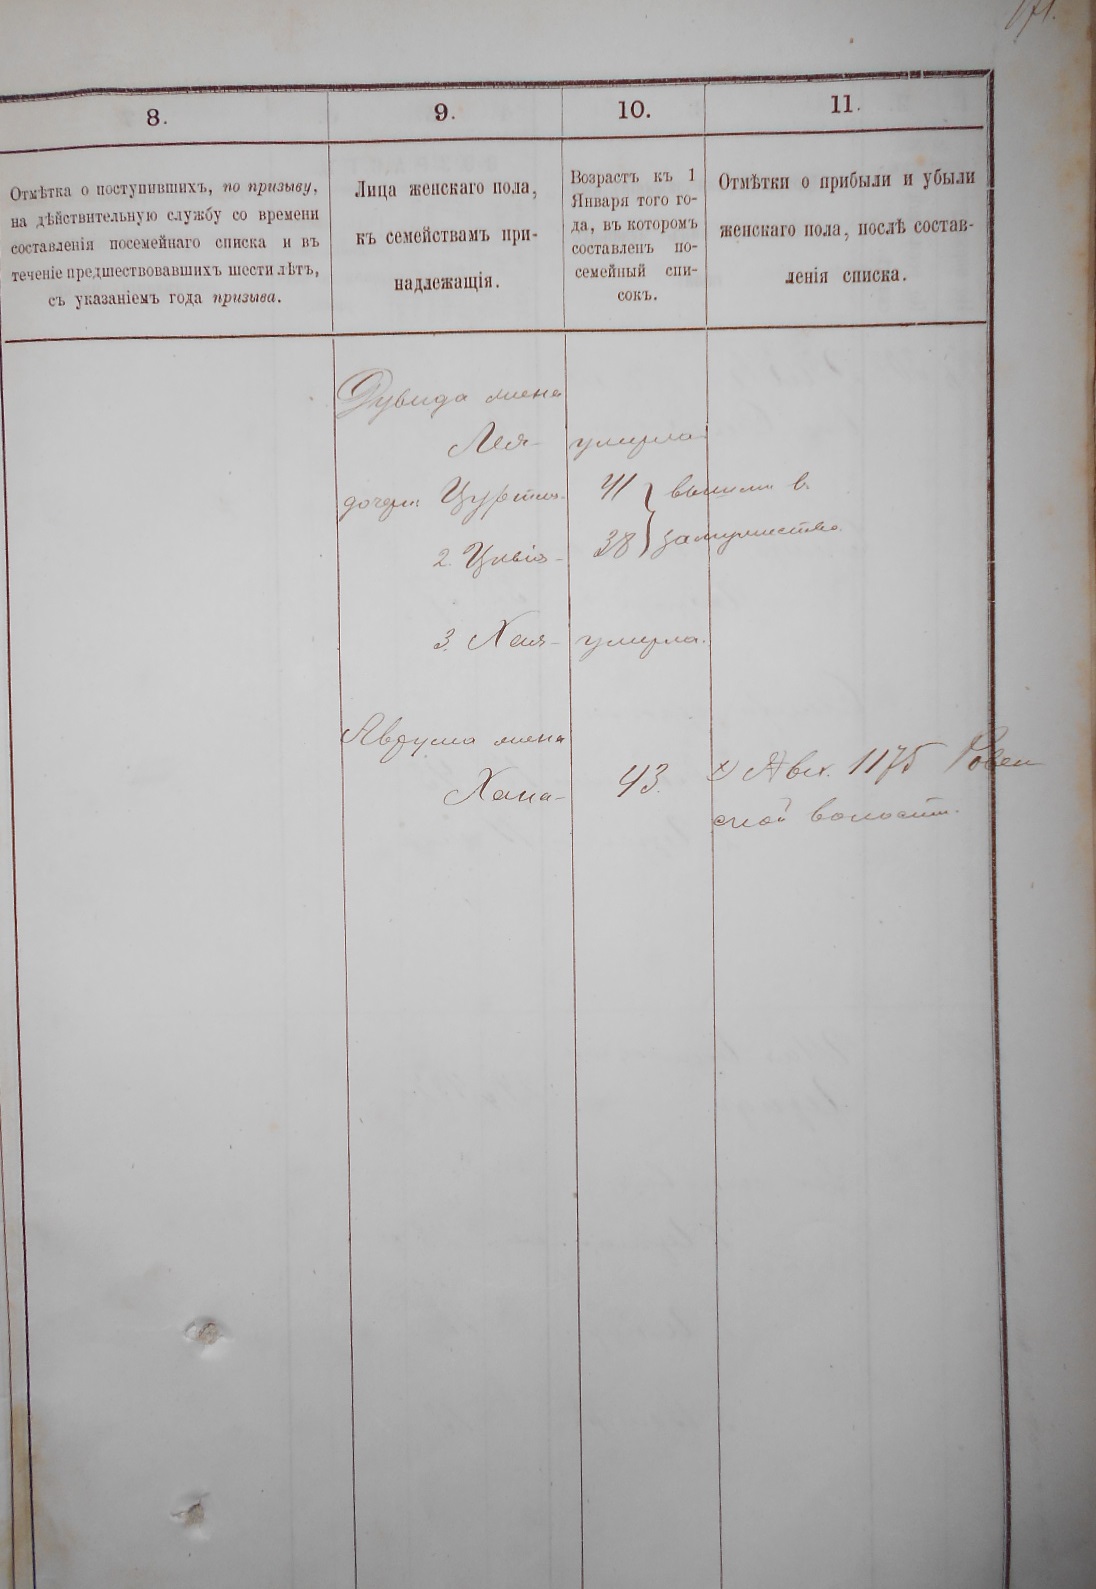 171.
8.
9.
10.
11.
Отмѣтка о поступившихъ, по призыву,
на дѣйствительную службу со времени
составленія посемейнаго списка и въ
теченіе предшествовавшихъ шести лѣтъ,
съ указаніемъ года призыва.
Лица женскаго пола,
къ семействамъ при-
надлежащія.
Возрастъ къ 1
Января того го-
да, въ которомъ
составленъ по-
семейный спи-
сокъ.
Отмѣтки о прибыли и убыли
женскаго пола, послѣ состав-
ленія списка.
Дувида жена
Лея умерла
дочери Цуртля 41 вышли в
2. Цивія 38 замужество
3. Хая умерла.
Аврума жена
Хана 43. 1175 Ровен
ской волости.